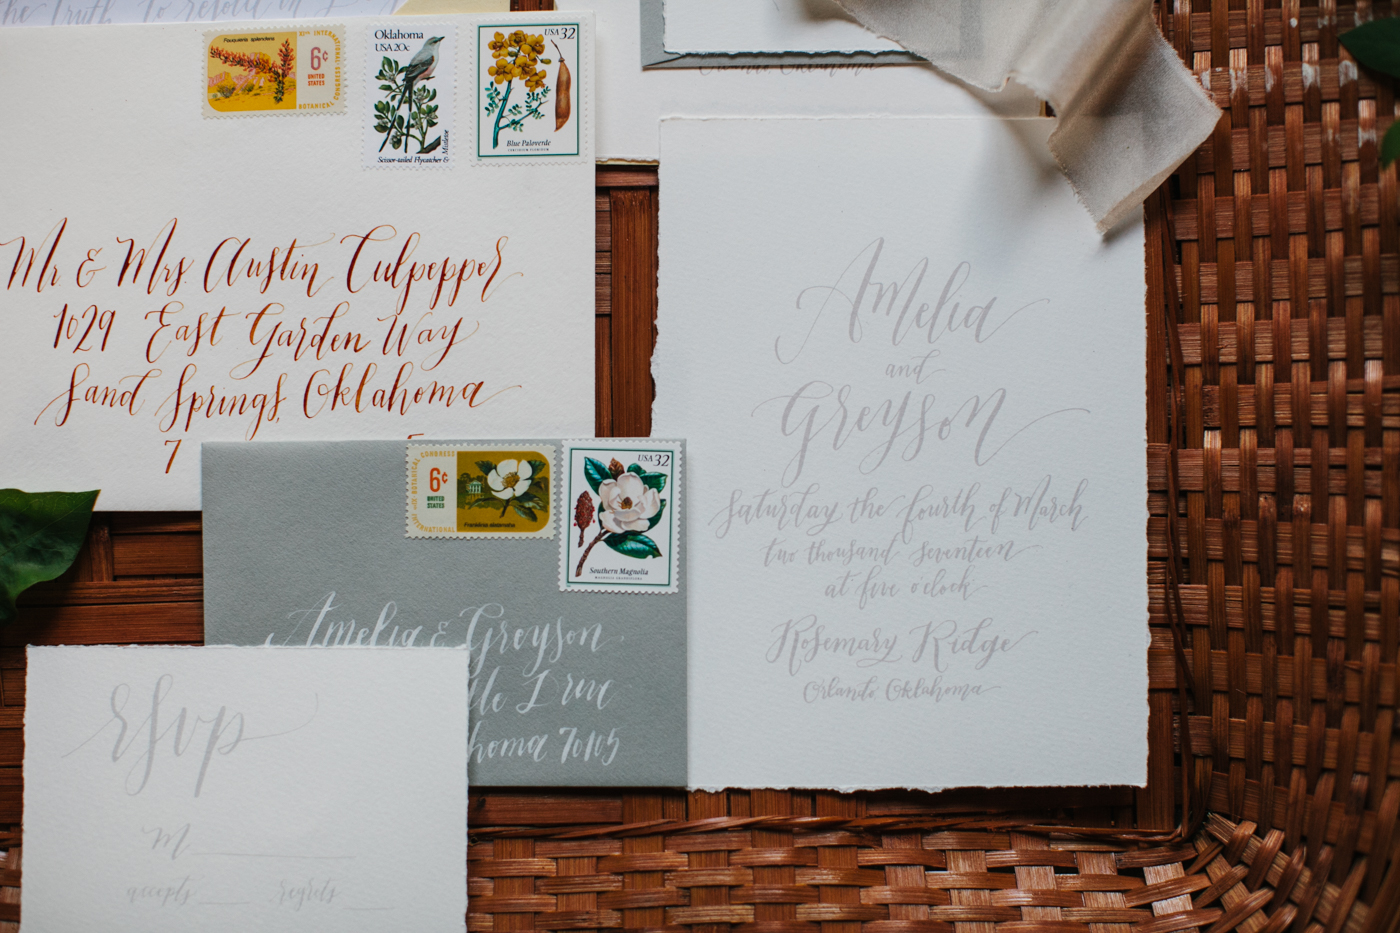 the Truth To resold in
Fouquieria splendens
XI INTERNATIONAL
BOTANICAL CONGRESS
6¢
UNITED
STATES
Oklahoma
USA 20c
Scissor-tailed Flycatcher &
Mistletoe
USA 32
Blue Paloverde
Mr. & Mrs. Austin Culpepper
1029 East Garden Way
Sand Springs, Oklahoma
7
Orlando, Oklahoma
Amelia
and
Greyson
Saturday the fourth of March
two thousand seventeen
at five o'clock
Rosemary Ridge
Orlando, Oklahoma
XI INTERNATIONAL BOTANICAL CONGRESS
6¢
UNITED
STATES
Franklinia alatamaha
USA 32
Southern Magnolia
MAGNOLIA GRANDIFLORA
Amelia & Greyson
lle Drive
homa 70105
rsvp
M
accepts regrets